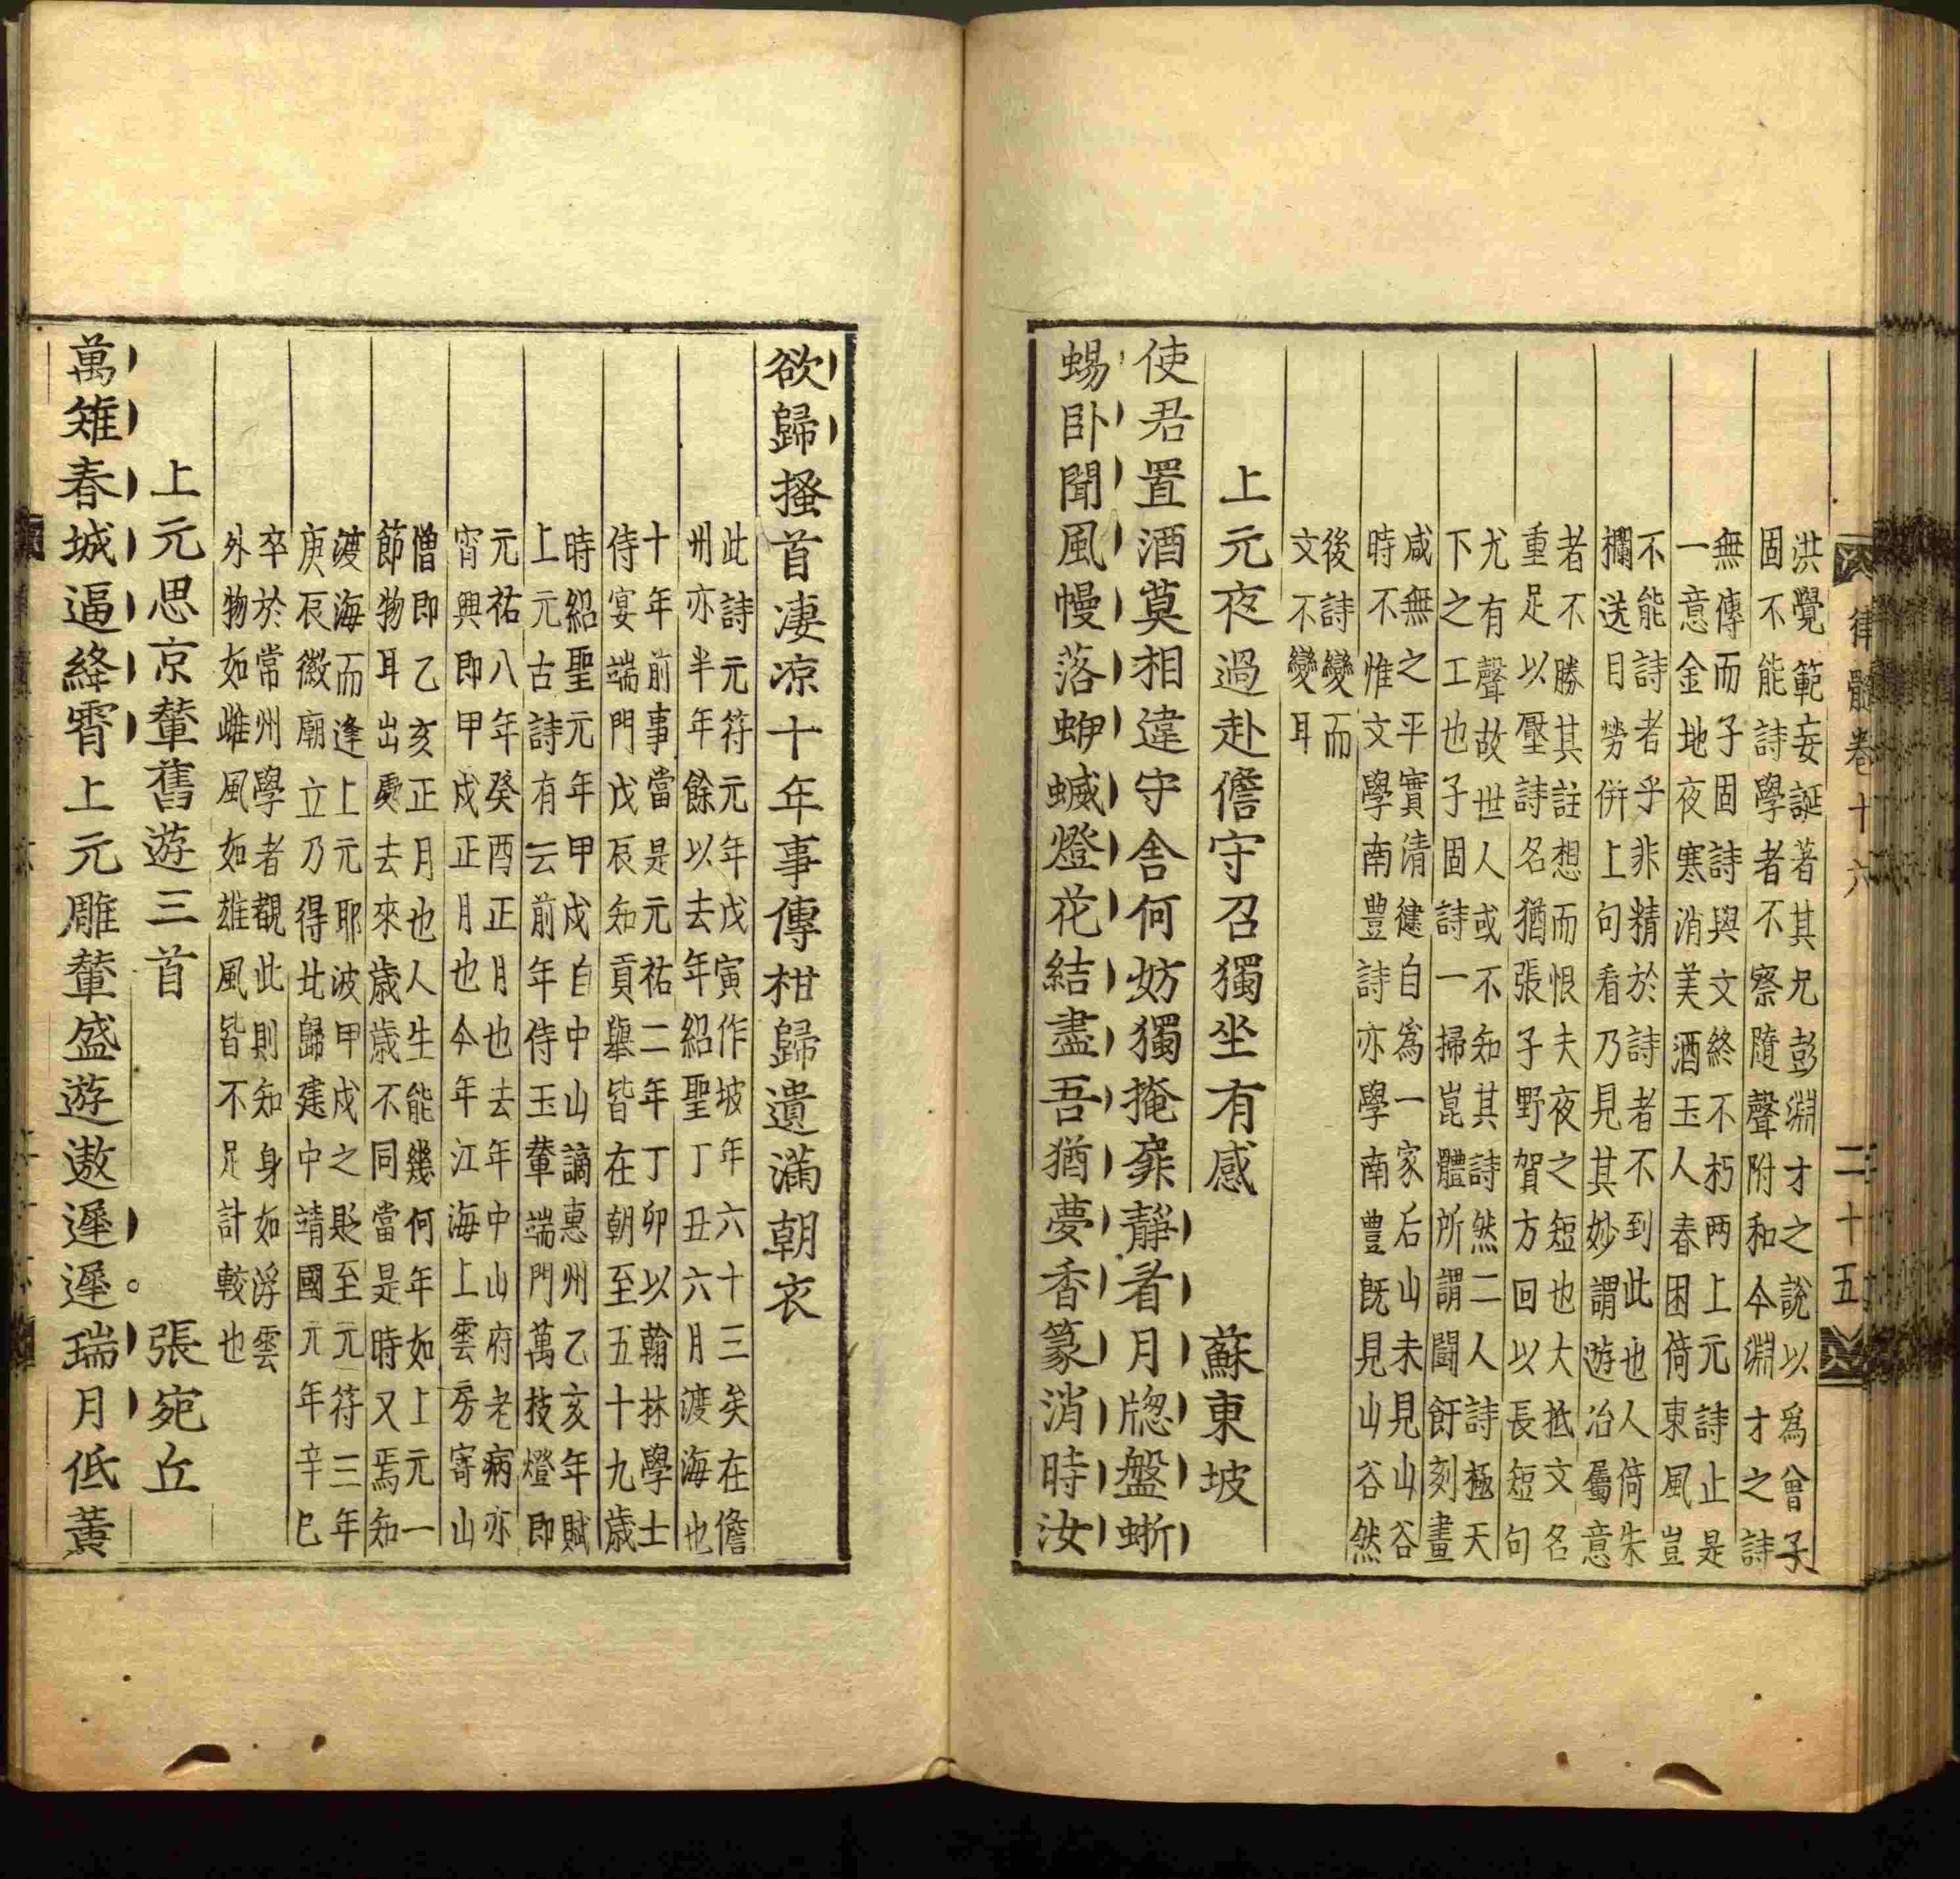 律體卷十六　二十五
洪覺範妄誕著其兄彭淵才之說以爲曾子
固不能詩學者不察隨聲附和今淵才之詩
無傳而子固詩與文終不朽两上元詩止是
一意金地夜寒消美酒玉人春困倚東風豈
不能詩者乎非精於詩者不到此也人倚朱
欄送目勞併上句看乃見其妙謂遊冶屬意
者不勝其註想而恨夫夜之短也大抵文名
重足以壓詩名猶張子野賀方回以長短句
尤有聲故世人或不知其詩然二人詩極天
下之工也子固詩一掃崑體所謂鬪飣刻畫
咸無之平實清健自爲一家后山未見山谷
時不惟文學南豊詩亦學南豊旣見山谷然
後詩變而
文不變耳
上元夜過赴儋守召獨坐有感　蘇東坡
使君置酒莫相違守舎何妨獨掩扉靜看月牎盤蜥
蜴卧聞風幔落蛜蝛燈花結盡吾猶夢香篆消時汝
欲歸搔首凄凉十年事傳柑歸遺滿朝衣
此詩元符元年戊寅作坡年六十三矣在儋
州亦半年餘以去年紹聖丁丑六月渡海也
十年前事當是元祐二年丁卯以翰林學士
侍宴端門戊辰知貢舉皆在朝至五十九歳
時紹聖元年甲戌自中山謫惠州乙亥年賦
上元古詩有云前年侍玉輦端門萬技燈即
元祐八年癸酉正月也去年中山府老病亦
宵興即甲戌正月也今年江海上雲房寄山
僧即乙亥正月也人生能幾何年如上元一
節物耳出處去來歳歳不同當是時又焉知
渡海而逢上元耶波甲戌之貶至元符三年
庚辰徽廟立乃得北歸建中靖國元年辛巳
卒於常州學者觀此則知身如浮雲
外物如雌風如雄風皆不足計較也
上元思京輦舊遊三首　張宛丘
萬雉春城逼絳霄上元雕輦盛遊遨遲遲瑞月低黃